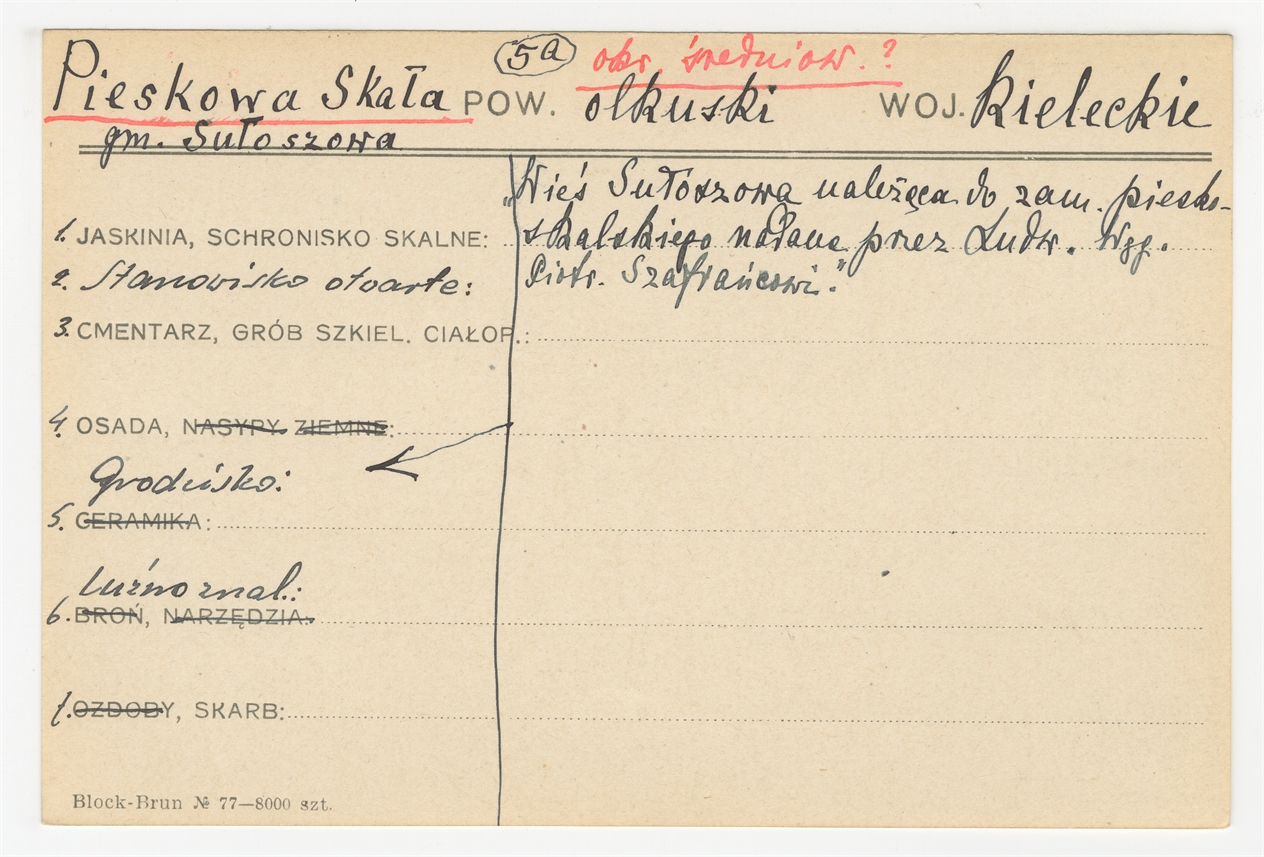 5a okr. średniow. ?
Pieskowa Skała POW. olkuski WOJ. Kieleckie
gm. Sułoszowa
„Wieś Sułoszowa należąca do zam. piesko-
skalskiego nadana przez Ludw. Węg.
Piotr. Szafrańcowi."
1. JASKINIA, SCHRONISKO SKALNE:
2. Stanowisko otwarte:
3. CMENTARZ, GRÓB SZKIEL. CIAŁOP.:
4. OSADA, NASYPY ZIEMNE:
Grodzisko:
5. CERAMIKA:
Luźno znal.:
6. BROŃ, NARZĘDZIA:
7. OZDOBY, SKARB:
Block-Brun № 77—8000 szt.